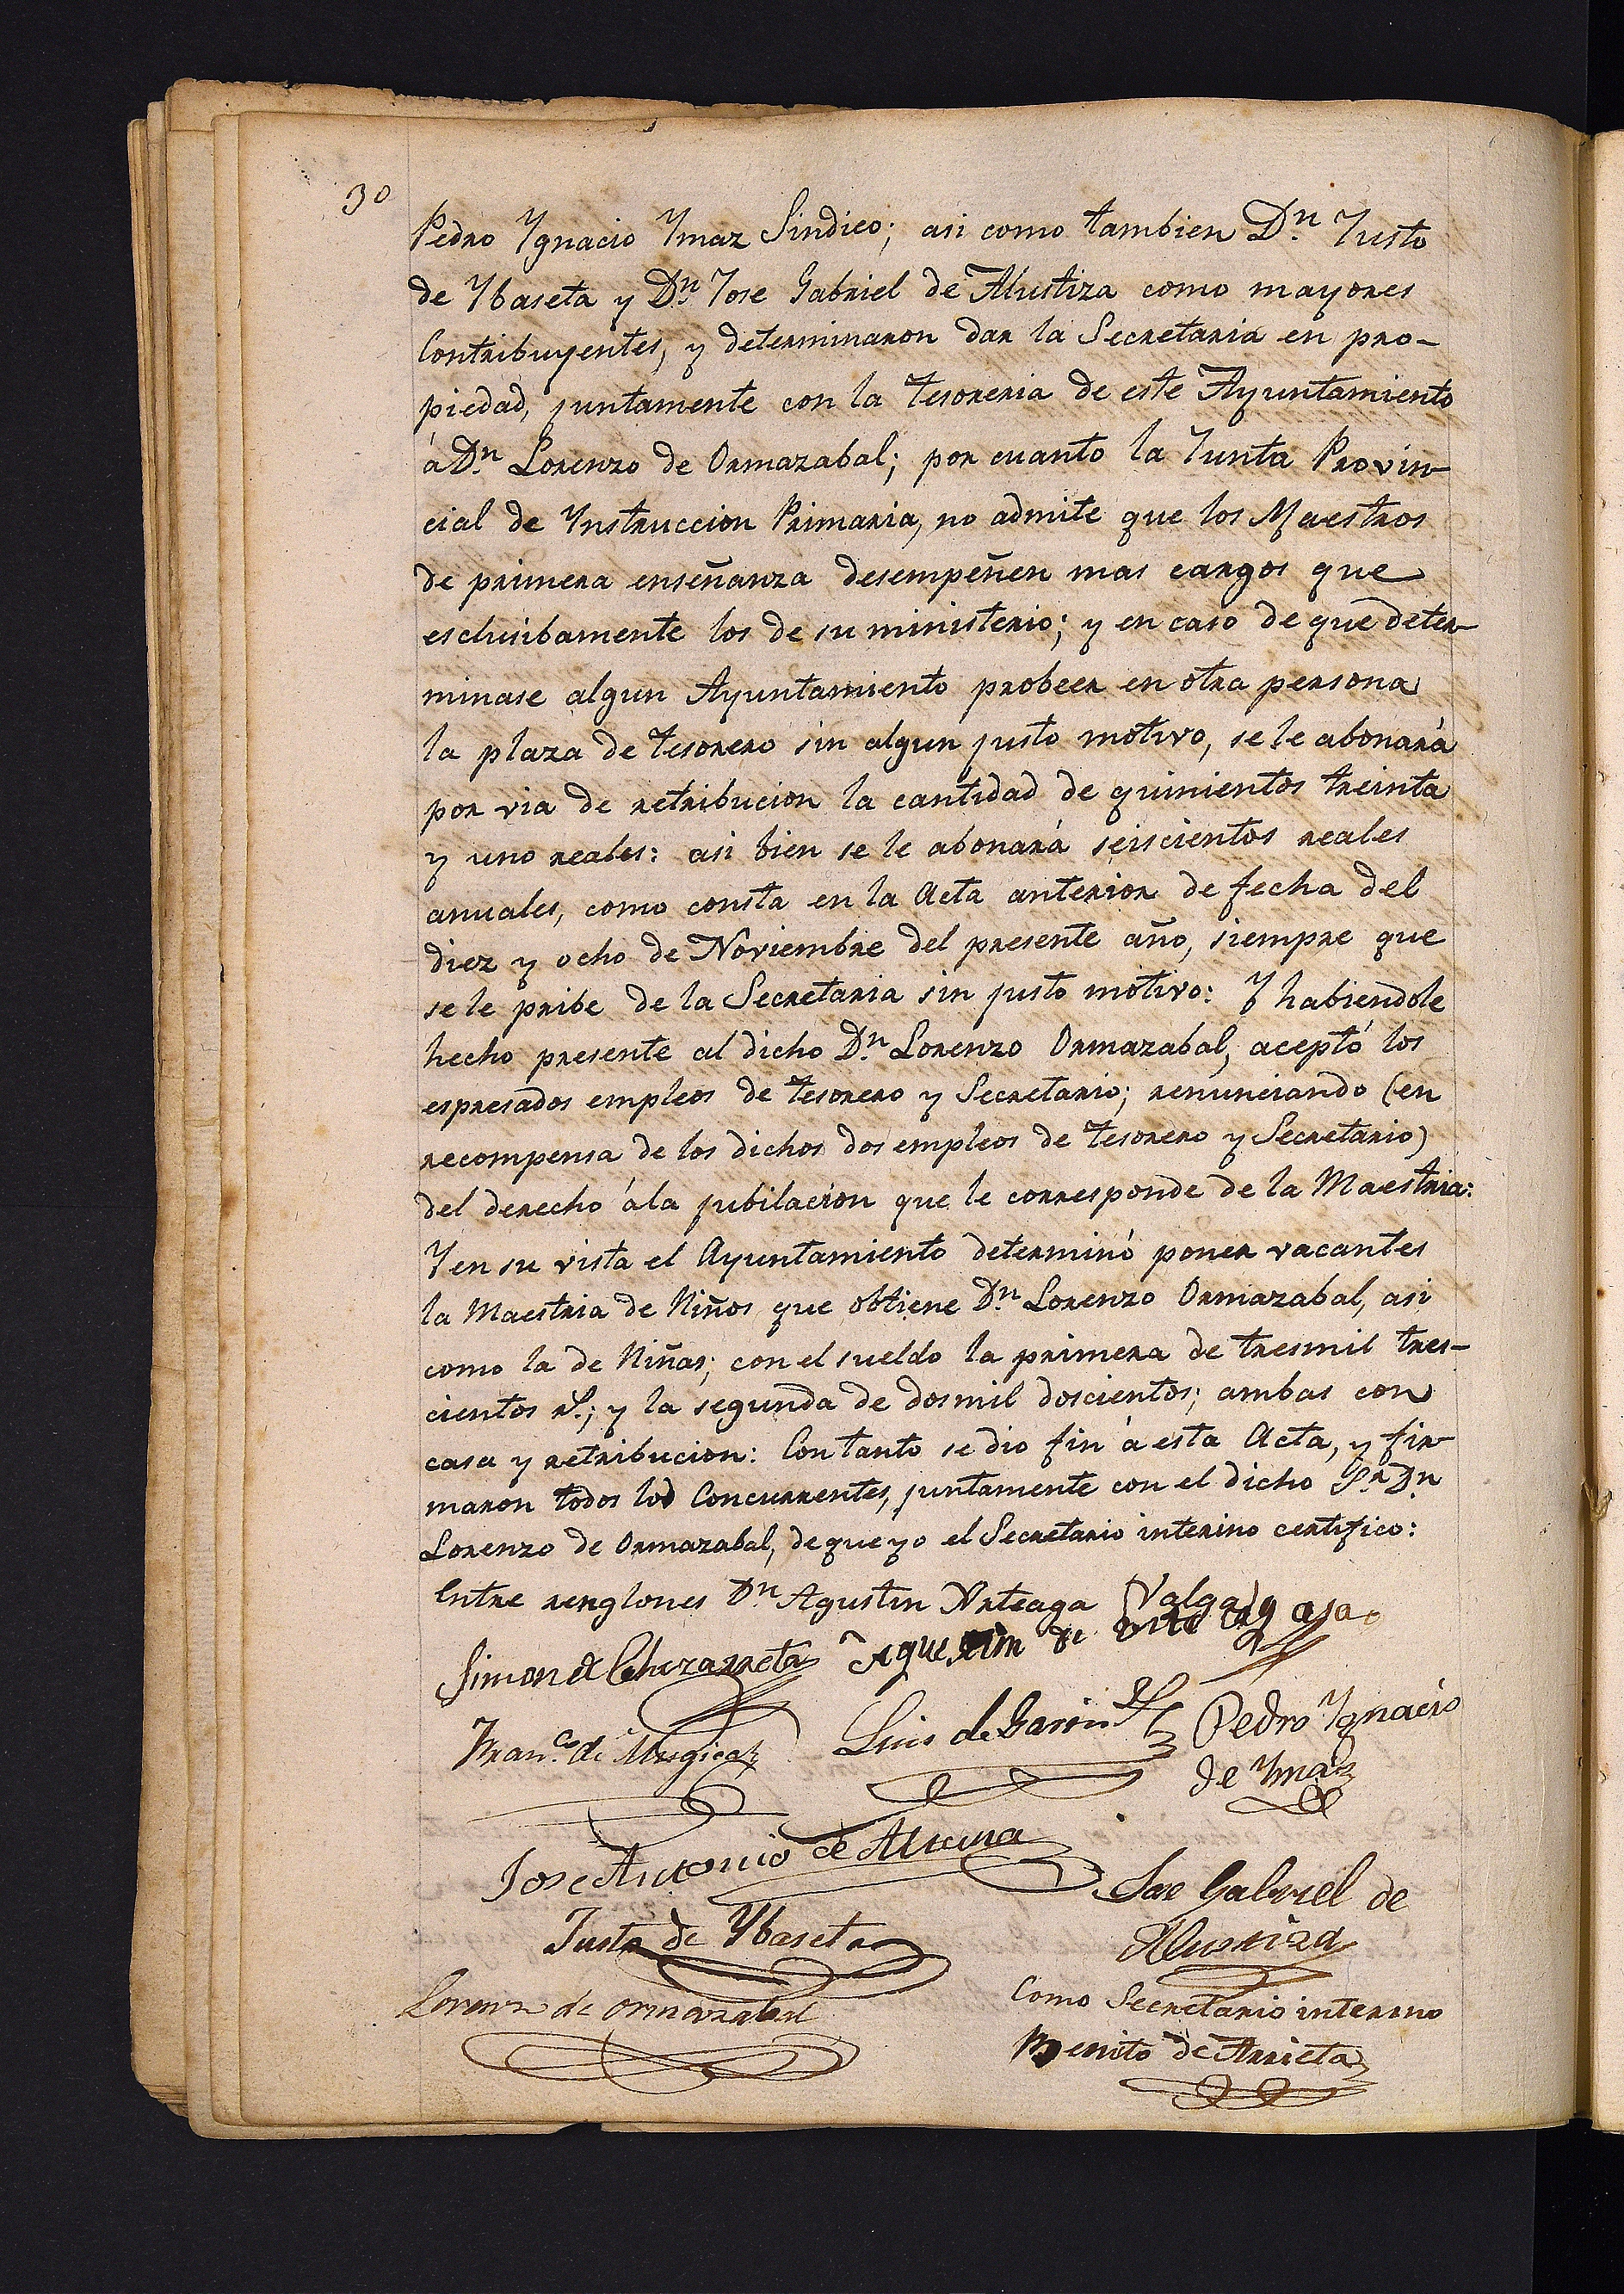 30
Pedro Ygnacio Ymaz Sindico; asi como tambien Dn. Justo
de Ybaseta y Dn. Jose Gabriel de Alustiza como mayores
Contribuyentes, y determinaron dar la Secretaria en pro-
piedad, juntamente con la tesoreria de este Ayuntamiento
á Dn. Lorenzo de Ormazabal; por cuanto la Junta Provin-
cial de Ynstruccion Primaria, no admite que los Maestros
de primera enseñanza desempeñen mas cargos que
esclusibamente los de su ministerio; y en caso de que deter-
minase algun Ayuntamiento probeer en otra persona
la plaza de tesorero sin algun justo motivo, se le abonará
por via de retribucion la cantidad de quinientos treinta
y uno reales: asi bien se le abonará seiscientos reales
anuales, como consta en la Acta anterior de fecha del
diez y ocho de Noviembre del presente año, siempre que
se le pribe de la Secretaria sin justo motivo: Y habiendole
hecho presente al dicho Dn. Lorenzo Ormazabal, aceptó los
espresados empleos de tesorero y Secretario; renunciando (en
recompensa de los dichos dos empleos de tesorero y Secretario)
del derecho á la jubilacion que le corresponde de la Maestria:
Y en su vista el Ayuntamiento determinó poner vacantes
la Maestria de Niños que obtiene Dn. Lorenzo Ormazabal, asi
como la de Niñas; con el sueldo la primera de tresmil tres-
cientos rs.; y la segunda de dosmil doscientos; ambas con
casa y retribucion: Con tanto se dio fin á esta Acta, y fir-
maron todos los Concurrentes, juntamente con el dicho Sr. Dn.
Lorenzo de Ormazabal, de que yo el Secretario interino certifico:
Entre renglones Dn. Agustin Arteaga Valga
Simon de Echezarreta Agustin de
Franco. de Mugica Luis de Garin Pedro Ygnacio
de Ymaz
Jose Antonio de Jose Gabriel de
Justo de Ybaseta Alustiza
Lorenzo de Ormazabal Como Secretario interino
Benito de Arrieta